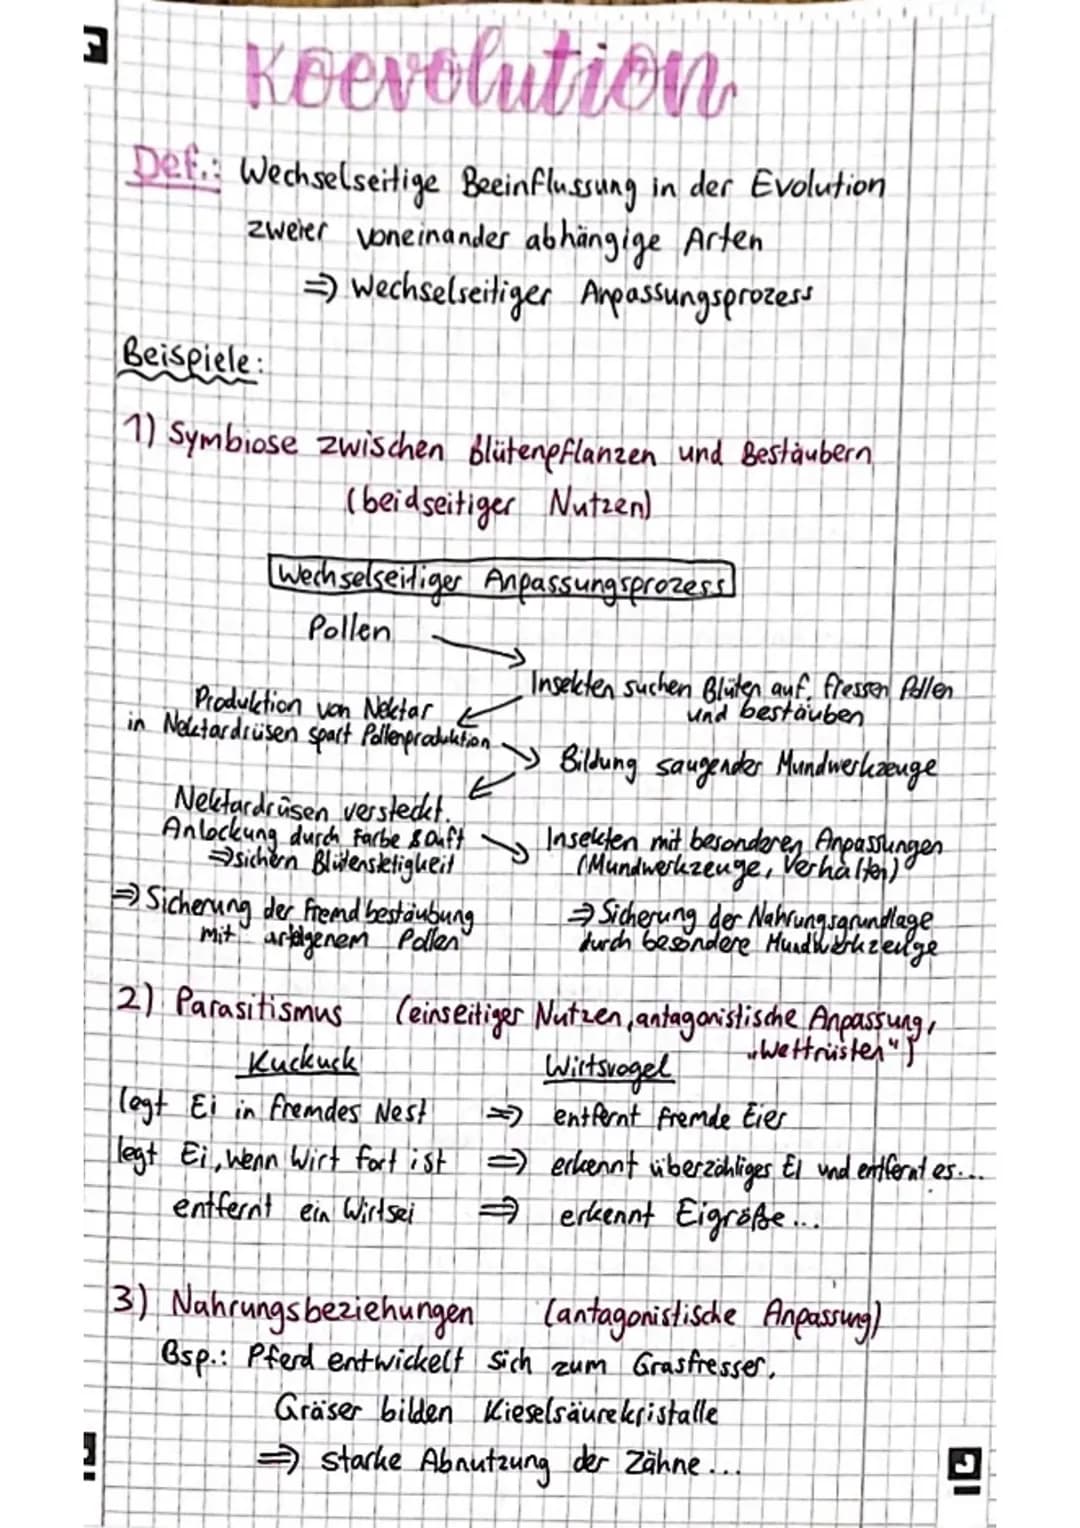 Koevolution
Def.: Wechselseitige Beeinflussung in der Evolution
zweier voneinander abhängige Arten
=> Wechselseitiger Anpassungsprozess
Beispiele:
1) Symbiose zwischen Blütenpflanzen und Bestäubern
(beidseitiger Nutzen)
Wechselseitiger Anpassungsprozess
Pollen
Insekten suchen Blüten auf, fressen Pollen
und bestäuben
Produktion von Nektar
in Nektardrüsen spart Pollenproduktion
Bildung saugender Mundwerkzeuge
Nektardrüsen versteckt.
Anlockung durch Farbe & Duft
=> sichern Blütenstetigkeit
Insekten mit besonderen Anpassungen
(Mundwerkzeuge, Verhalten)
=> Sicherung der Fremdbestäubung
mit arteigenem Pollen
=> Sicherung der Nahrungsgrundlage
durch besondere Mundwerkzeuge
2) Parasitismus (einseitiger Nutzen, antagonistische Anpassung,
„Wettrüsten")
Kuckuck Wirtsvogel
legt Ei in fremdes Nest => entfernt fremde Eier
legt Ei, wenn Wirt fort ist => erkennt überzähliges Ei und entfernt es...
entfernt ein Wirtsei => erkennt Eigröße...
3) Nahrungsbeziehungen (antagonistische Anpassung)
Bsp.: Pferd entwickelt sich zum Grasfresser,
Gräser bilden Kieselsäurekristalle
=> starke Abnutzung der Zähne...